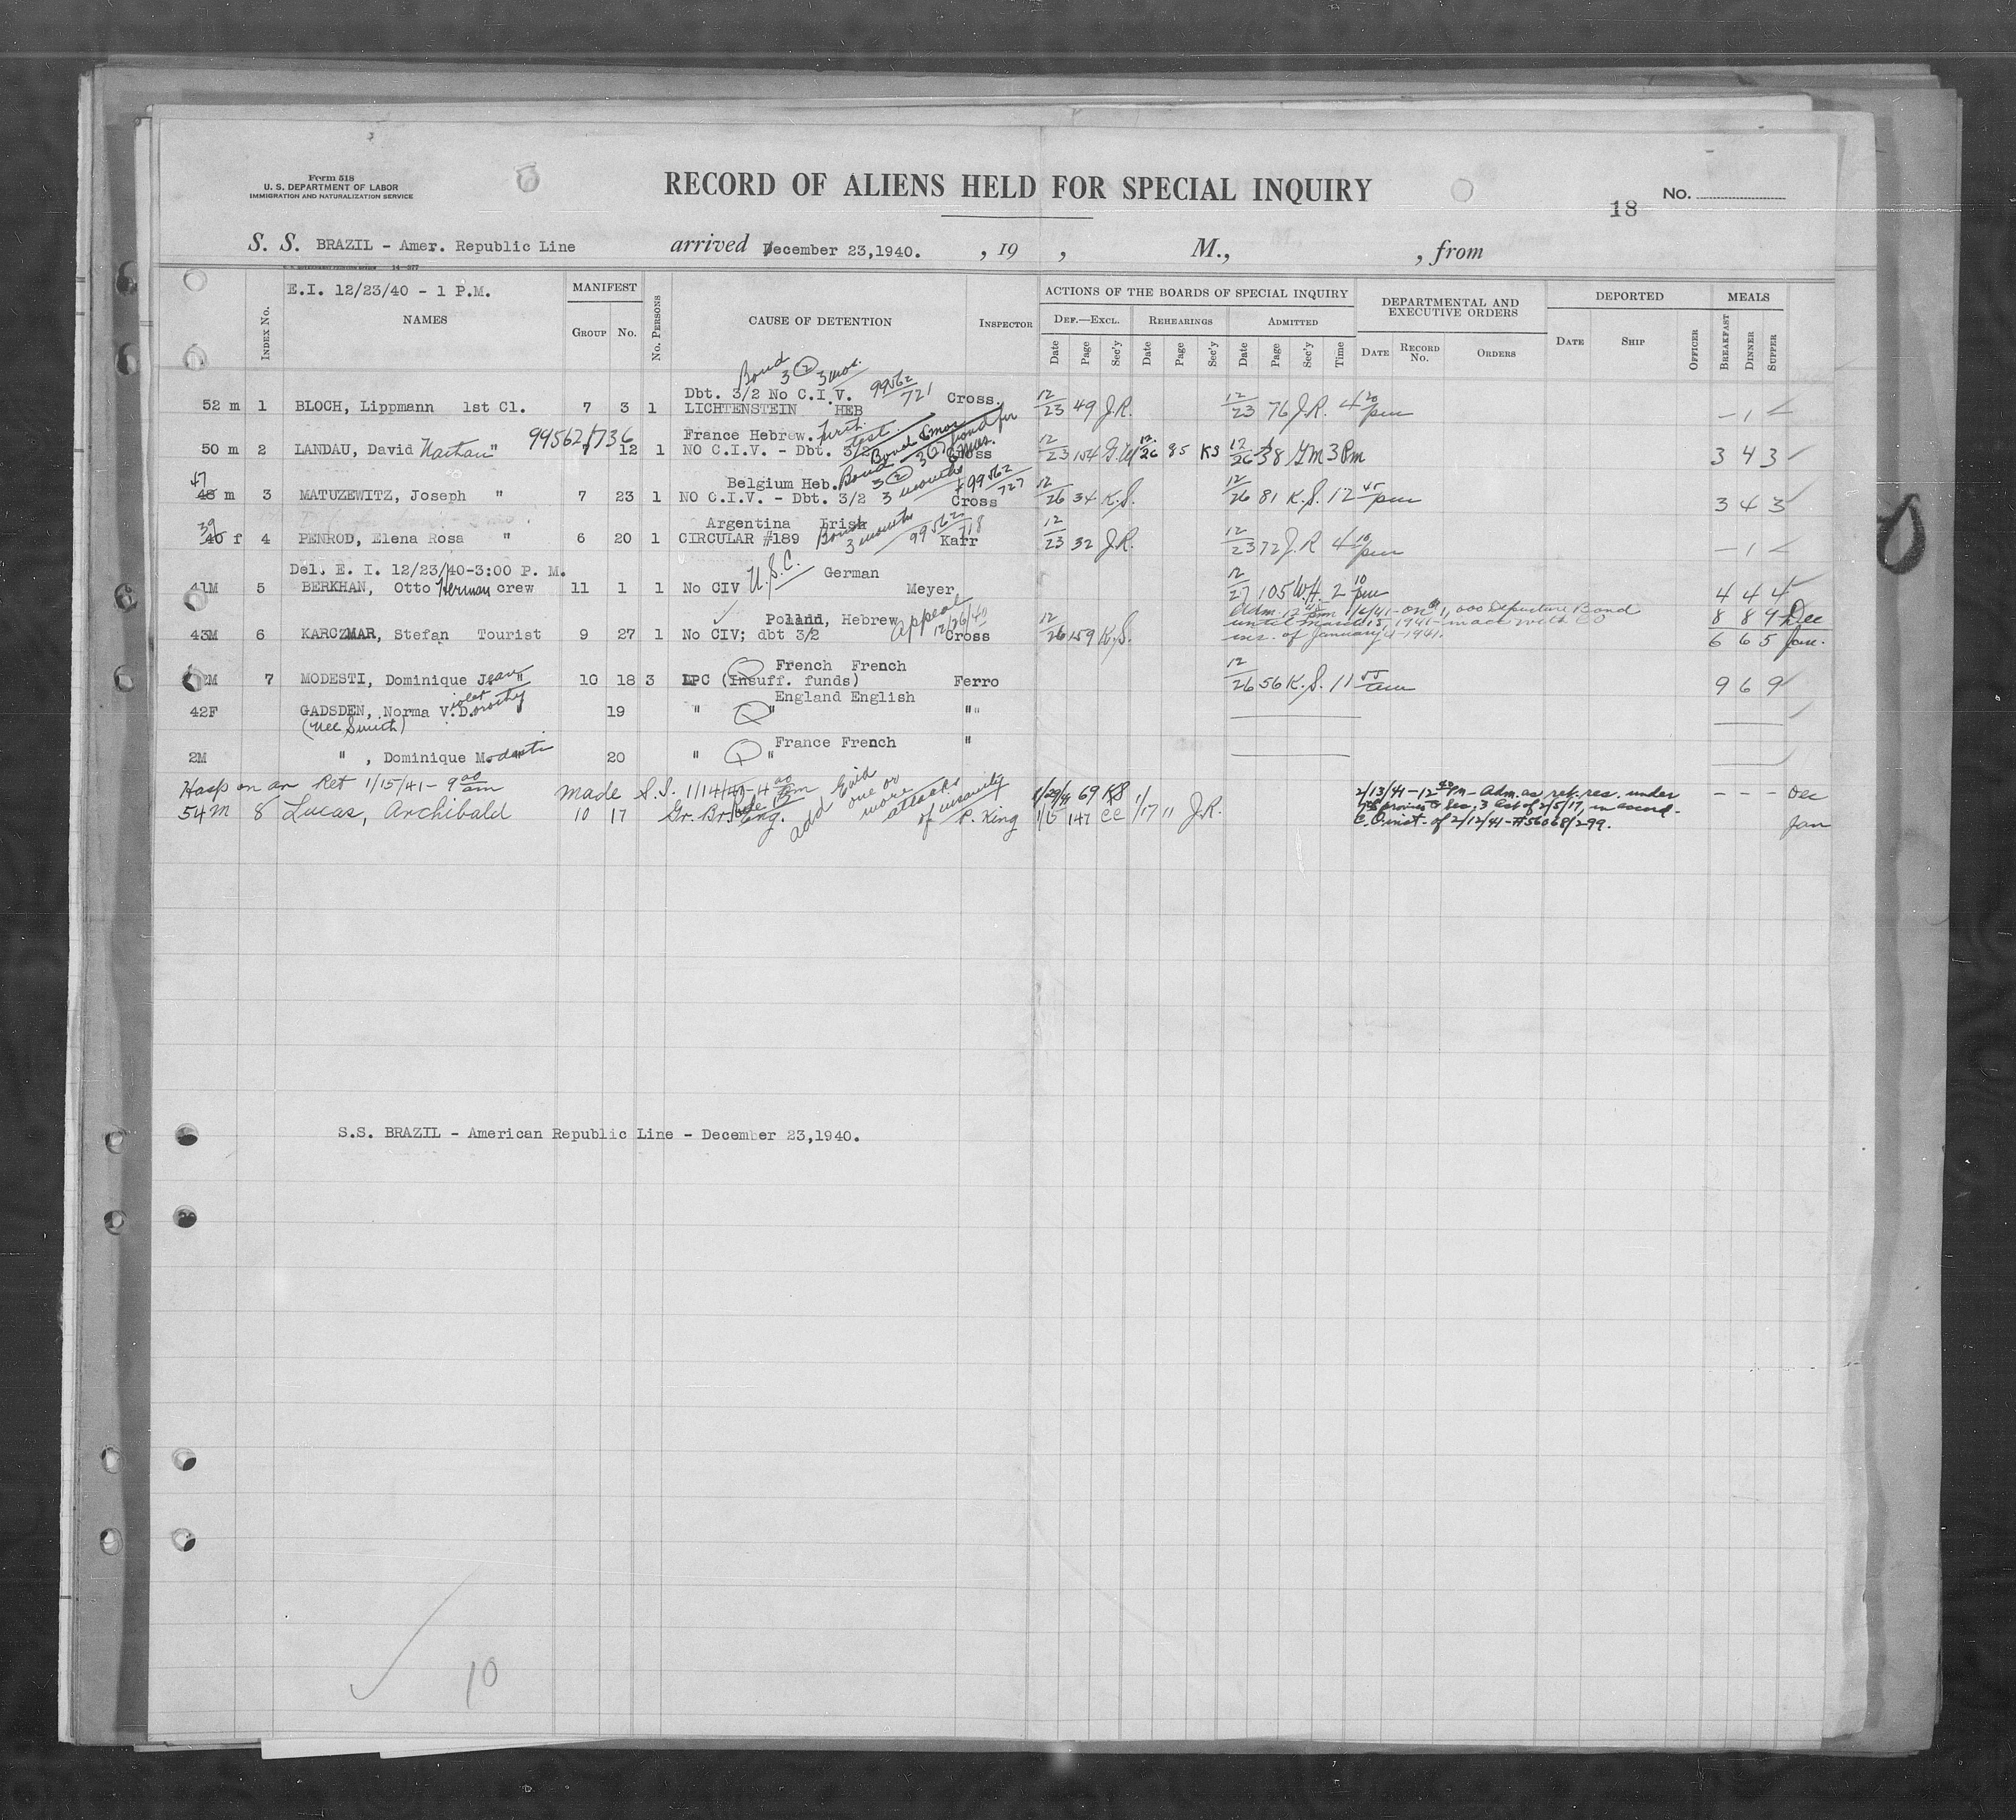 Form 518
U. S. DEPARTMENT OF LABOR
IMMIGRATION AND NATURALIZATION SERVICE
RECORD OF ALIENS HELD FOR SPECIAL INQUIRY
No.
18
S. S. BRAZIL - Amer. Republic Line arrived December 23,1940. , 19 , M., , from
E.I. 12/23/40 - 1 P.M.
Index No. NAMES MANIFEST Group No. No. Persons CAUSE OF DETENTION Inspector
ACTIONS OF THE BOARDS OF SPECIAL INQUIRY
Def.—Excl. Rehearings Admitted
Date Page Sec'y Date Page Sec'y Date Page Sec'y Time
DEPARTMENTAL AND EXECUTIVE ORDERS
Date Record No. Orders
DEPORTED
Date Ship Officer
MEALS
Breakfast Dinner Supper
Bond 3 (2) 3 mos.
Dbt. 3/2 No C.I.V. 99562/721
52 m 1 BLOCH, Lippmann 1st Cl. 7 3 1 LICHTENSTEIN HEB Cross. 12/23 49 J.R. 12/23 76 J.R. 4 20 pm – 1 –
France Hebrew.
50 m 2 LANDAU, David Nathan " 99562/736 7 12 1 NO C.I.V. - Dbt. 3/2 Bond 6 mos Cross 12/23 154 12/26 95 KS 12/26 38 GM 3 Pm 3 4 3
Belgium Heb. Bond 3 (2) 3 months 99562/727
47
48 m 3 MATUZEWITZ, Joseph " 7 23 1 NO C.I.V. - Dbt. 3/2 Cross 12/26 34 K.S. 12/26 81 K.S. 12 45 pm 3 4 3
Argentina Irish Bond 3 months 99562/718
39
40 f 4 PENROD, Elena Rosa " 6 20 1 CIRCULAR #189 Karr 12/23 32 J.R. 12/23 72 J.R 4 10 pm – 1 –
Del. E. I. 12/23/40-3:00 P. M.
U.S.C. German
41M 5 BERKHAN, Otto Herman crew 11 1 1 No CIV Meyer 12/27 105 W.H. 2 10 pm 4 4 4
Polland, Hebrew Appeal 12/26/40
43M 6 KARCZMAR, Stefan Tourist 9 27 1 No CIV; dbt 3/2 Cross 12/26 159 K.S.
Adm. 12 45 pm 1/6/41 - on $1,000 Departure Bond
until March 15, 1941 - in acc with CO
ins. of January 4 1941.
8 8 9 Dec
6 6 5 Jan.
French French
2M 7 MODESTI, Dominique Jean " 10 18 3 LPC (Insuff. funds) Ferro 12/26 56 K.S. 11 55 am 9 6 9
England English
42F GADSDEN, Norma Violet Dorothy 19 " " ""
(nee Smith)
France French
2M " , Dominique Modesti 20 " " "
Hosp on an Ret 1/15/41 - 9 00 am made S.I. 1/14/40 - 4 00 pm
54 m 8 Lucas, Archibald 10 17 Gr. Br. Eng. add Evid one or more attacks of insanity P. King
1/29/41 69 KS
1/15 147 CC 1/17 11 J.R.
2/13/41 - 12 40 Pm - Adm. as ret. res. under
7th proviso to Sec. 3 Act of 2/5/17, in accord.
C.O. inst. of 2/12/41 - #56068/299.
– – – Dec
Jan
S.S. BRAZIL - American Republic Line - December 23,1940.
10